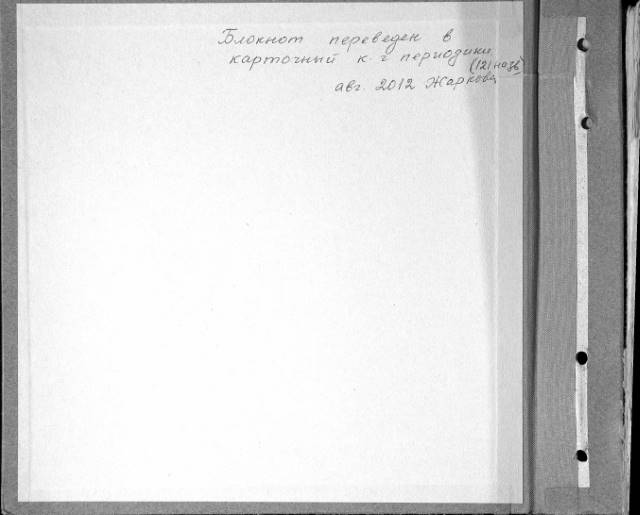 Блокнот переведен в
карточный к-г периодики
(121 назв)
авг. 2012 Жаркова